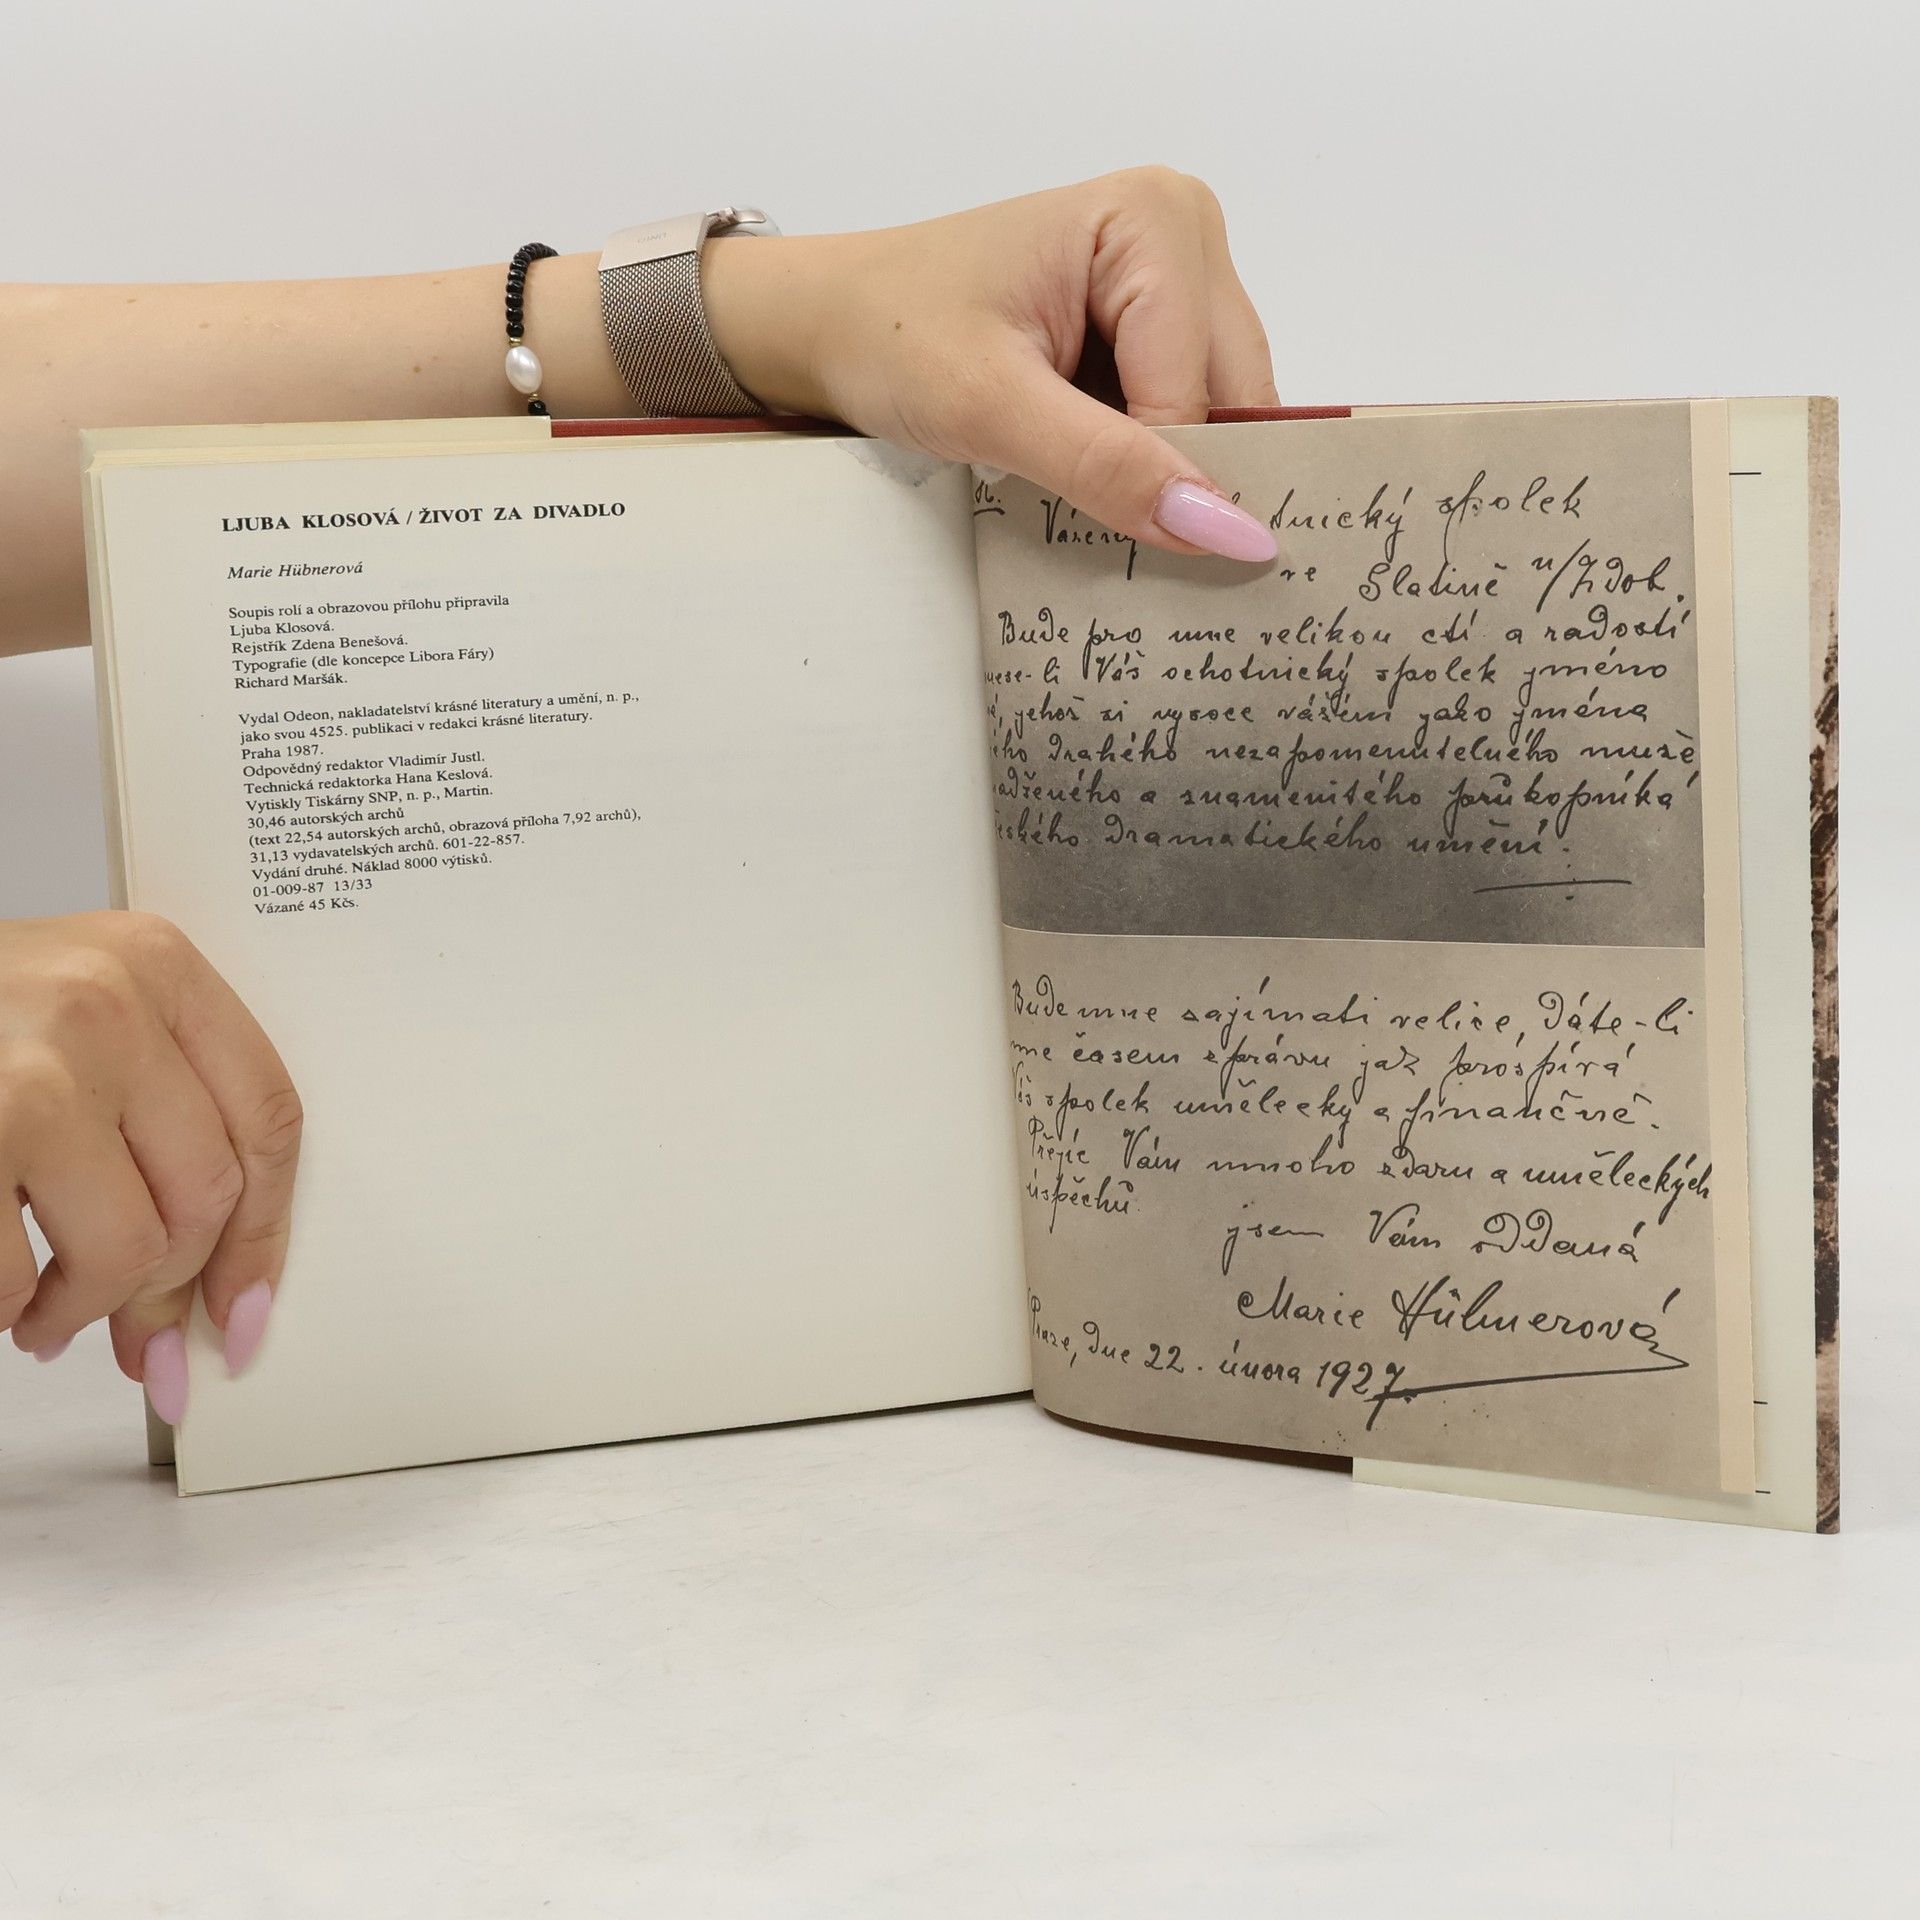 LJUBA KLOSOVÁ / ŽIVOT ZA DIVADLO
Marie Hübnerová
Soupis rolí a obrazovou přílohu připravila
Ljuba Klosová.
Rejstřík Zdena Benešová.
Typografie (dle koncepce Libora Fáry)
Richard Maršák.
Vydal Odeon, nakladatelství krásné literatury a umění, n. p.,
jako svou 4525. publikaci v redakci krásné literatury.
Praha 1987.
Odpovědný redaktor Vladimír Justl.
Technická redaktorka Hana Keslová.
Vytiskly Tiskárny SNP, n. p., Martin.
30,46 autorských archů
(text 22,54 autorských archů, obrazová příloha 7,92 archů),
31,13 vydavatelských archů. 601-22-857.
Vydání druhé. Náklad 8000 výtisků.
01-009-87 13/33
Vázané 45 Kčs.
tnický spolek
ve Slatině n/Zdob.
Bude pro mne velikou ctí a radostí
Váš ochotnický spolek jméno
jehož si vysoce vážím jako jména
drahého nezapomenutelného muže
a znamenitého průkopníka
dramatického umění.
Bude mne zajímati velice, dáte-li
mne časem zprávu jak prospívá
Váš spolek umělecky a finančně.
Přejíc Vám mnoho zdaru a uměleckých
úspěchů
jsem Vám oddaná
Marie Hübnerová
Praze, dne 22. února 1927.